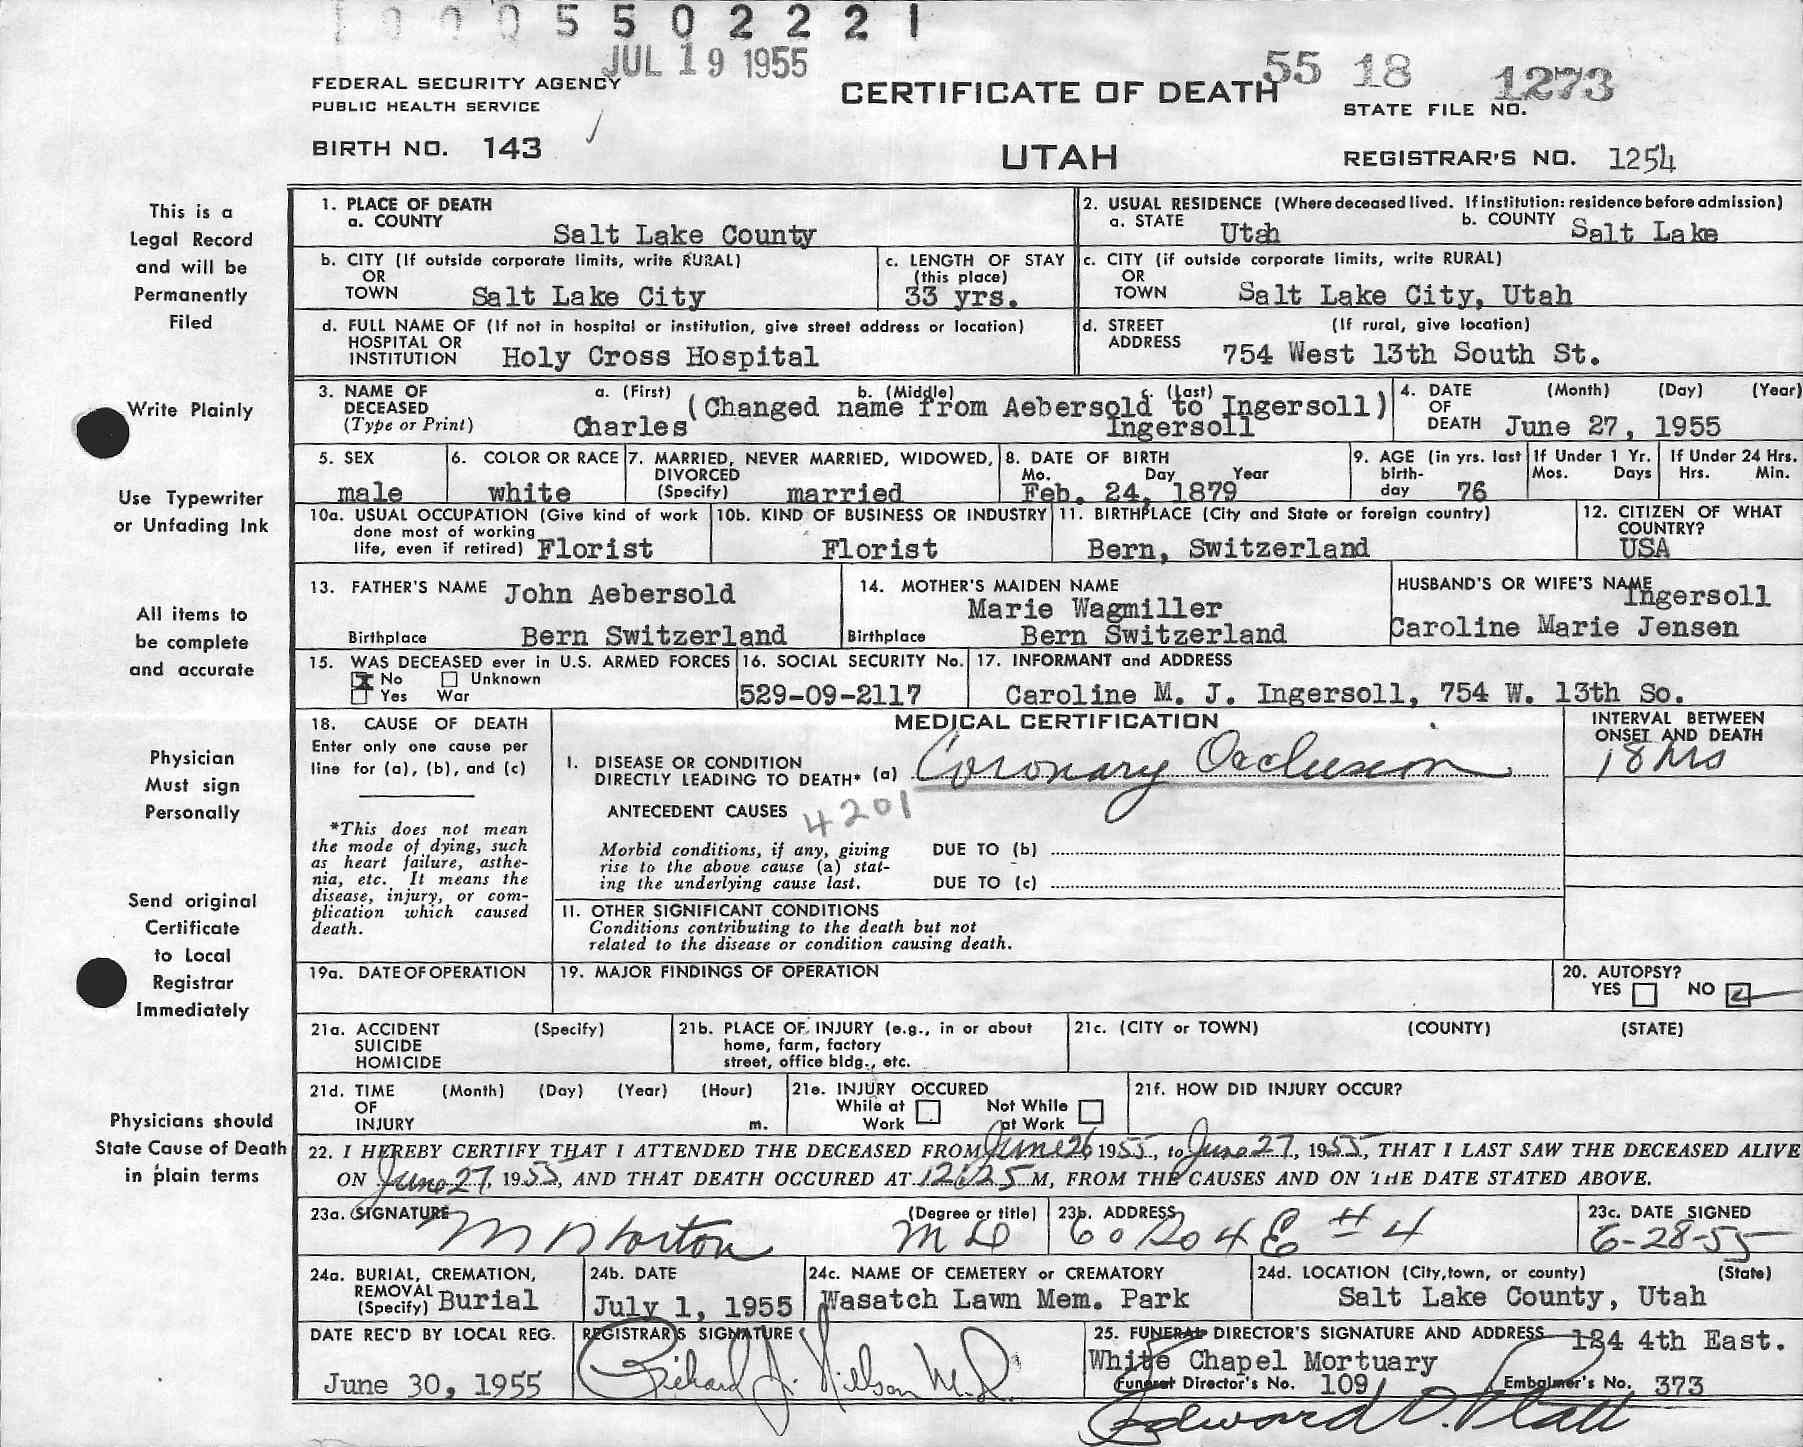 1 0 0 0 5 5 0 2 2 2 1
JUL 19 1955
FEDERAL SECURITY AGENCY
PUBLIC HEALTH SERVICE
CERTIFICATE OF DEATH
55 18 1273
STATE FILE NO.
BIRTH NO. 143
UTAH
REGISTRAR'S NO. 1254
This is a
Legal Record
and will be
Permanently
Filed
Write Plainly
Use Typewriter
or Unfading Ink
All items to
be complete
and accurate
Physician
Must sign
Personally
Send original
Certificate
to Local
Registrar
Immediately
Physicians should
State Cause of Death
in plain terms
1. PLACE OF DEATH
a. COUNTY
Salt Lake County
2. USUAL RESIDENCE (Where deceased lived. If institution: residence before admission)
a. STATE Utah b. COUNTY Salt Lake
b. CITY (If outside corporate limits, write RURAL)
OR
TOWN Salt Lake City
c. LENGTH OF STAY
(this place)
33 yrs.
c. CITY (if outside corporate limits, write RURAL)
OR
TOWN Salt Lake City, Utah
d. FULL NAME OF (If not in hospital or institution, give street address or location)
HOSPITAL OR
INSTITUTION Holy Cross Hospital
d. STREET (If rural, give location)
ADDRESS
754 West 13th South St.
3. NAME OF a. (First) b. (Middle) c. (Last)
DECEASED (Changed name from Aebersold to Ingersoll)
(Type or Print) Charles Ingersoll
4. DATE (Month) (Day) (Year)
OF
DEATH June 27, 1955
5. SEX
male
6. COLOR OR RACE
white
7. MARRIED, NEVER MARRIED, WIDOWED,
DIVORCED
(Specify) married
8. DATE OF BIRTH
Mo. Day Year
Feb. 24, 1879
9. AGE (in yrs. last
birth-
day 76
If Under 1 Yr.
Mos. Days
If Under 24 Hrs.
Hrs. Min.
10a. USUAL OCCUPATION (Give kind of work
done most of working
life, even if retired) Florist
10b. KIND OF BUSINESS OR INDUSTRY
Florist
11. BIRTHPLACE (City and State or foreign country)
Bern, Switzerland
12. CITIZEN OF WHAT
COUNTRY?
USA
13. FATHER'S NAME John Aebersold
Birthplace Bern Switzerland
14. MOTHER'S MAIDEN NAME
Marie Wagmiller
Birthplace Bern Switzerland
HUSBAND'S OR WIFE'S NAME
Ingersoll
Caroline Marie Jensen
15. WAS DECEASED ever in U.S. ARMED FORCES
No Unknown
Yes War
16. SOCIAL SECURITY No.
529-09-2117
17. INFORMANT and ADDRESS
Caroline M. J. Ingersoll, 754 W. 13th So.
18. CAUSE OF DEATH
Enter only one cause per
line for (a), (b), and (c)
*This does not mean
the mode of dying, such
as heart failure, asthe-
nia, etc. It means the
disease, injury, or com-
plication which caused
death.
MEDICAL CERTIFICATION
INTERVAL BETWEEN
ONSET AND DEATH
I. DISEASE OR CONDITION
DIRECTLY LEADING TO DEATH* (a) Coronary Occlusion
18 hrs
ANTECEDENT CAUSES 4201
Morbid conditions, if any, giving
rise to the above cause (a) stat-
ing the underlying cause last.
DUE TO (b)
DUE TO (c)
11. OTHER SIGNIFICANT CONDITIONS
Conditions contributing to the death but not
related to the disease or condition causing death.
19a. DATE OF OPERATION
19. MAJOR FINDINGS OF OPERATION
20. AUTOPSY?
YES NO
21a. ACCIDENT (Specify)
SUICIDE
HOMICIDE
21b. PLACE OF INJURY (e.g., in or about
home, farm, factory
street, office bldg., etc.
21c. (CITY or TOWN) (COUNTY) (STATE)
21d. TIME (Month) (Day) (Year) (Hour)
OF
INJURY m.
21e. INJURY OCCURED
While at Not While
Work at Work
21f. HOW DID INJURY OCCUR?
22. I HEREBY CERTIFY THAT I ATTENDED THE DECEASED FROM June 26 1955, to June 27, 1955, THAT I LAST SAW THE DECEASED ALIVE
ON June 27, 1955, AND THAT DEATH OCCURED AT 12:25 M, FROM THE CAUSES AND ON THE DATE STATED ABOVE.
23a. SIGNATURE (Degree or title)
Horton M D
23b. ADDRESS
E #4
23c. DATE SIGNED
6-28-55
24a. BURIAL, CREMATION,
REMOVAL
(Specify) Burial
24b. DATE
July 1, 1955
24c. NAME OF CEMETERY or CREMATORY
Wasatch Lawn Mem. Park
24d. LOCATION (City, town, or county) (State)
Salt Lake County, Utah
DATE REC'D BY LOCAL REG.
June 30, 1955
REGISTRAR'S SIGNATURE
Richard J. Nilson M.D.
25. FUNERAL DIRECTOR'S SIGNATURE AND ADDRESS 124 4th East.
White Chapel Mortuary
Funeral Director's No. 109 Embalmer's No. 373
Edward D. Platt